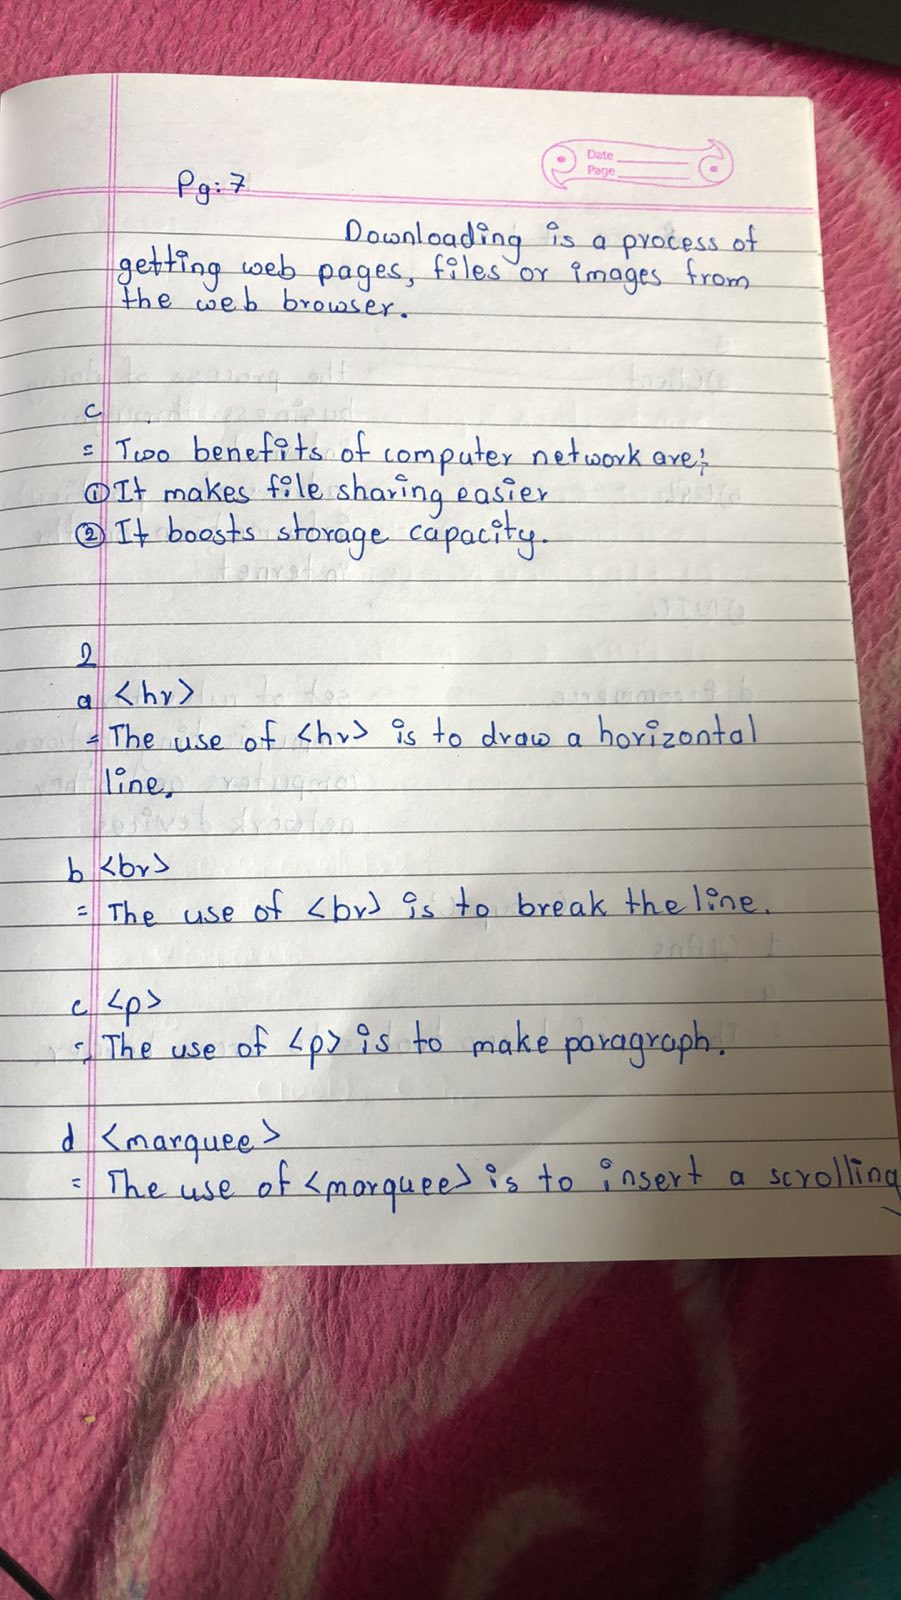 Date
Page
Pg:7
Downloading is a process of
getting web pages, files or images from
the web browser.
c
= Two benefits of computer network are:
① It makes file sharing easier
② It boosts storage capacity.
2
a <hr>
= The use of <hr> is to draw a horizontal
line.
b <br>
= The use of <br> is to break the line.
c <p>
= The use of <p> is to make paragraph.
d <marquee>
= The use of <marquee> is to insert a scrolling